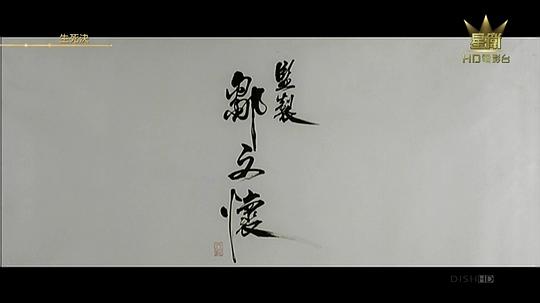 生死決
星衛
HD電影台
監製
鄒文懷
DISH HD